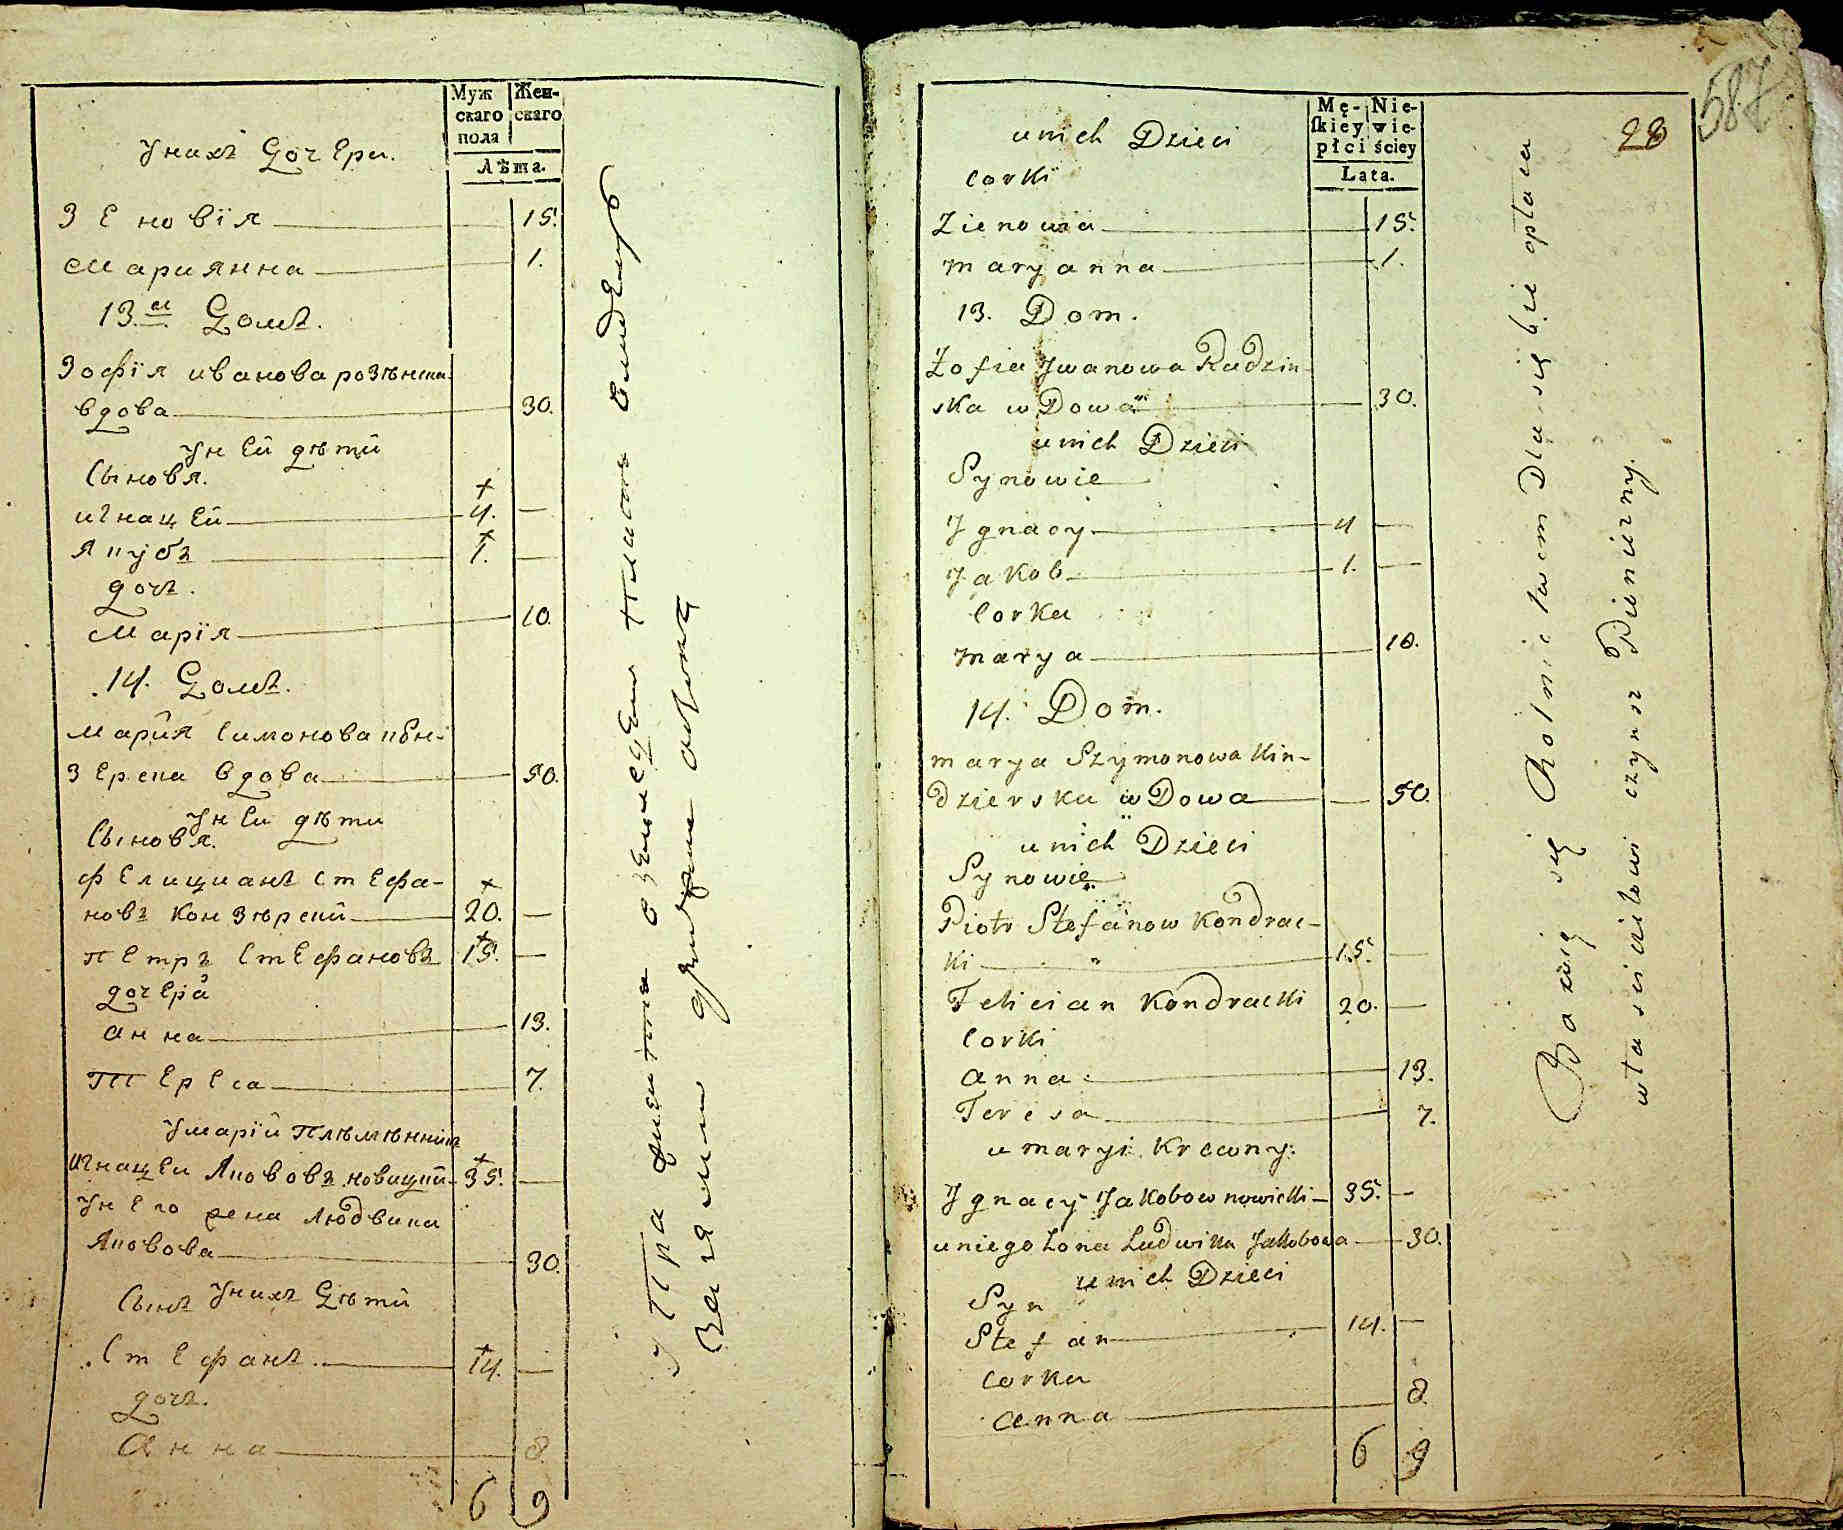 Муж
скаго
пола
Жен-
скаго
Лѣта.
у нихъ Дочери.
Зеновія 15.
Марианна 1.
13.й Домъ.
Зофія иванова
вдова 30.
у ней дѣти
Сыновя.
игнацей 4.
Якубъ 1.
дочь.
Марія 10.
14. Домъ.
Мария Симонова
вдова 50.
у ней дѣти
Сыновя.
Фелицианъ Стефа-
новъ 20.
Петръ Стефановъ 15.
дочера
анна 13.
Тереса 7.
у маріи
игнацеи новицкий 35.
у него жена людвика
30.
у нихъ Дѣти
Сынъ
Стефанъ. 14.
дочь.
Анна 8.
6 9
Mę-
skiey
płci
Nie-
wie-
ściey
Lata.
28
587
u nich Dzieci
Corki
Zienowia 15.
Maryanna 1.
13. Dom.
Zofia Jwanowa Radzin-
ska wDowa 30.
u nich Dzieci
Synowie
Jgnacy 4
Jakob 1.
Corka
Marya 10.
14. Dom.
Marya Szymonowa Kin-
dzierska wDowa 50.
u nich Dzieci
Synowie
Piotr Stefanow Kondrac-
ki 15.
Felician Kondracki 20.
Corki
Anna 13.
Teresa 7.
u Maryi Krewny:
Jgnacy Jakobow Nowicki 35.
u niego Żona Ludwika Jakobowa 30.
u nich Dzieci
Syn
Stefan 14.
Corka
Anna 8.
6 9
Bawią się Rolnictwem Dla siębie opłaca
włascicielowi czynsz Pienieżny.